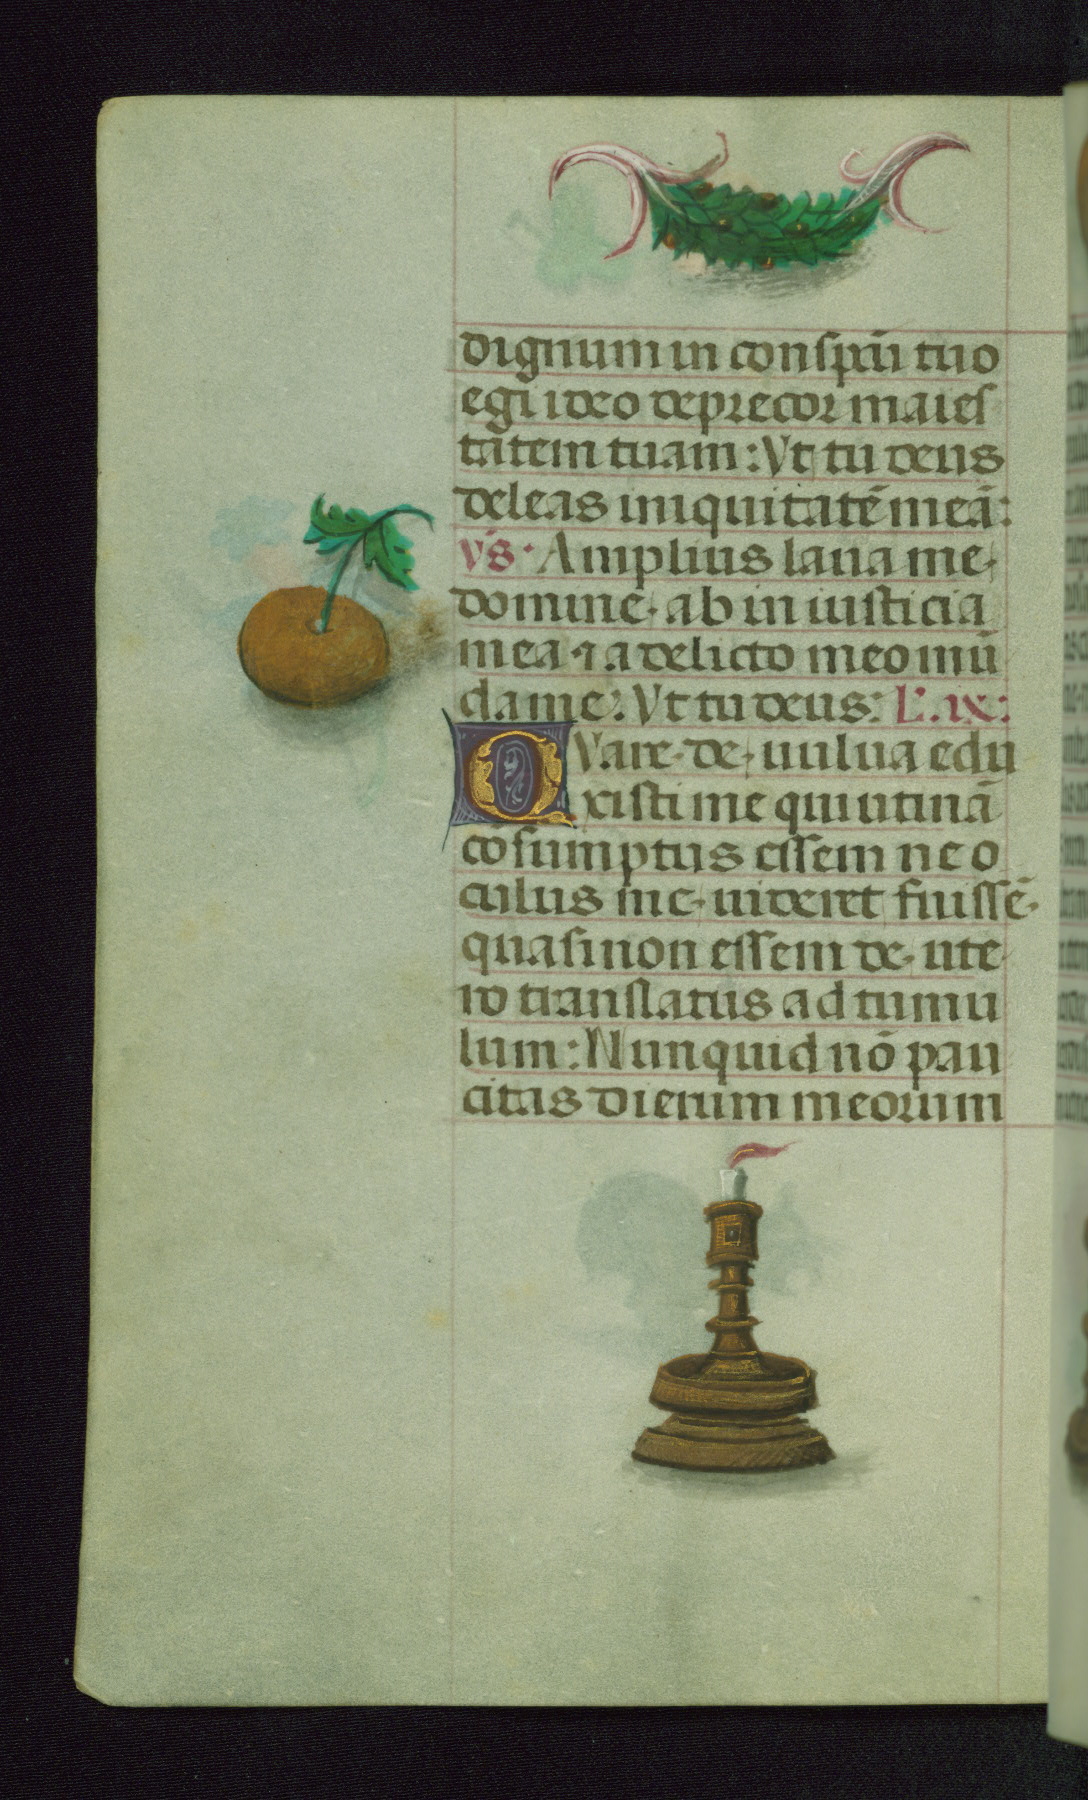 dignum in conspcū tuo
egi ideo deprecor maies
tatem tuam: Vt tu deus
deleas iniquitatē meā:
Vs. Amplius laua me
domine ab iniusticia
mea ⁊ a delicto meo mū
da me. Vt tu deus: L. ix:
QVare de uulua edu
xisti me qui utinā
cōsumptus essem ne o
culus me uideret fuissē
quasi non essem de ute
ro translatus ad tumu
lum: Nunquid nō pau
citas dierum meorum